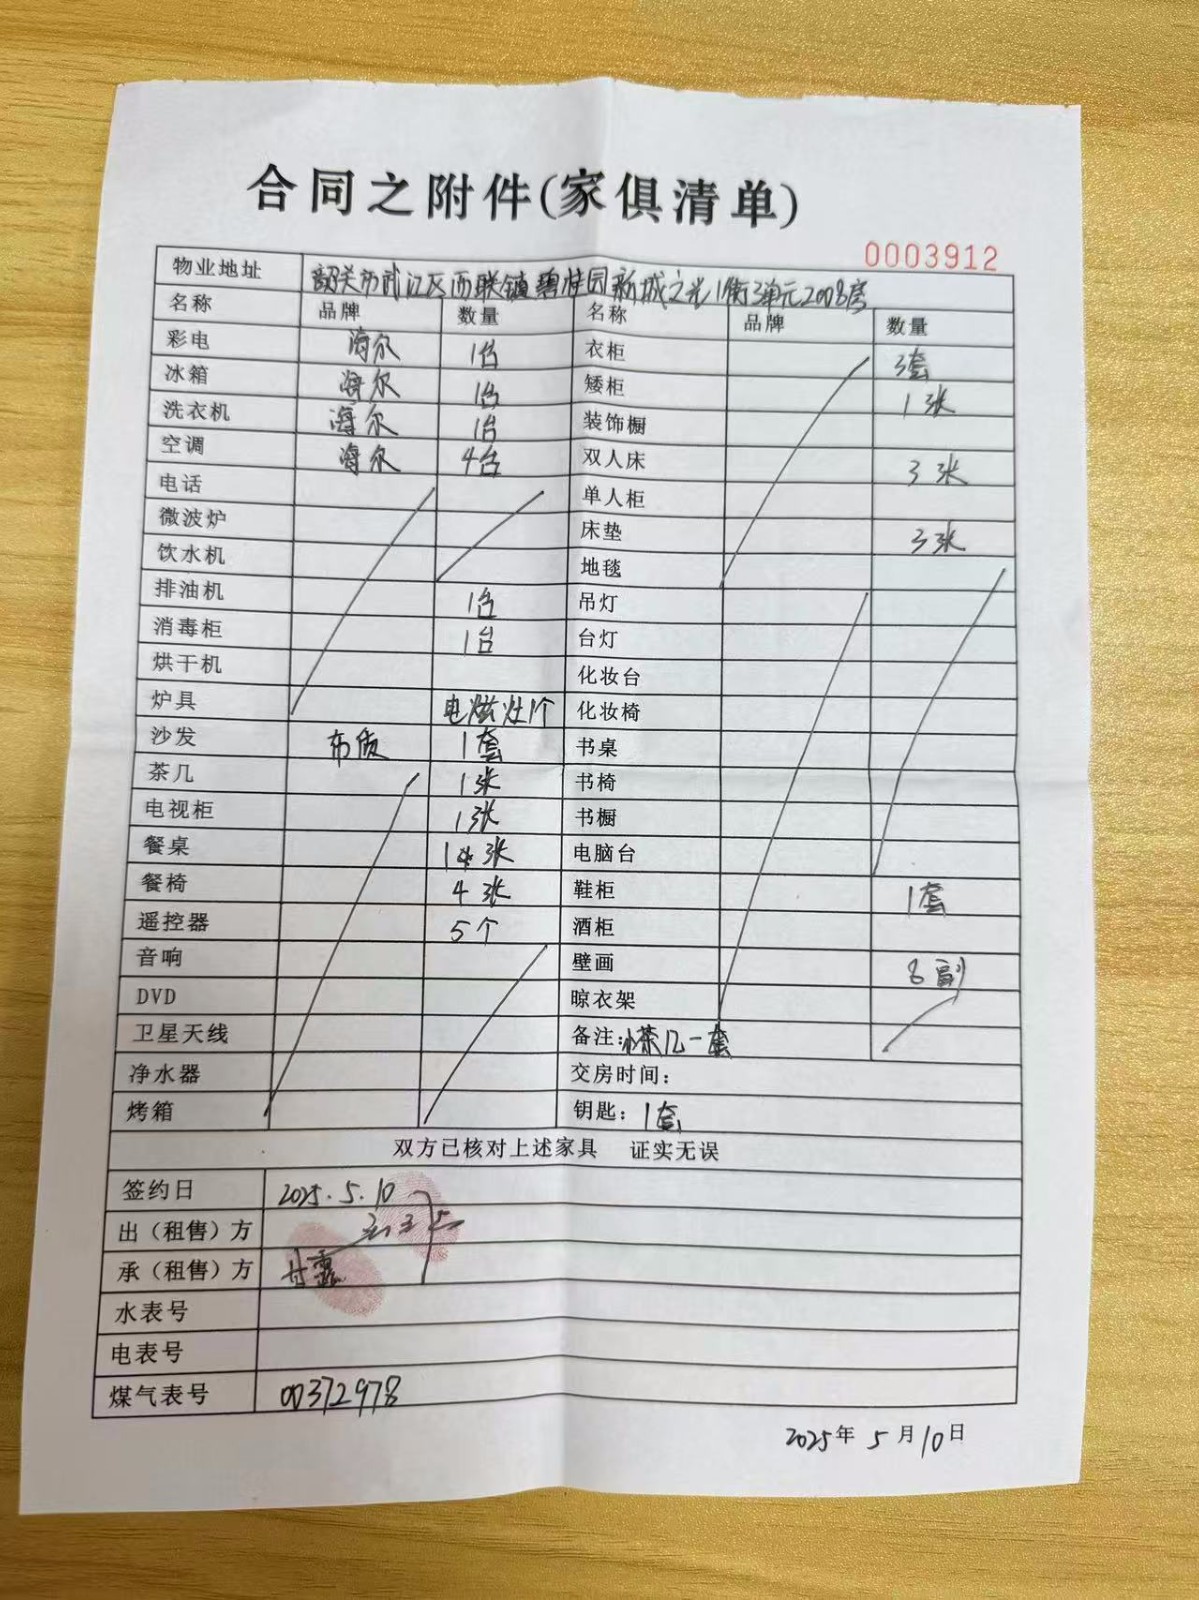 合同之附件(家俱清单)
0003912
物业地址 韶关市武江区西联镇碧桂园新城之光1街3单元2008房
名称 品牌 数量 名称 品牌 数量
彩电 海尔 1台 衣柜 3套
冰箱 海尔 1台 矮柜 1张
洗衣机 海尔 1台 装饰橱
空调 海尔 4台 双人床 3张
电话 单人柜
微波炉 床垫 3张
饮水机 地毯
排油机 1台 吊灯
消毒柜 1台 台灯
烘干机 化妆台
炉具 电磁灶1个 化妆椅
沙发 布质 1套 书桌
茶几 1张 书椅
电视柜 1张 书橱
餐桌 1张 电脑台
餐椅 4张 鞋柜 1套
遥控器 5个 酒柜
音响 壁画 8副
DVD 晾衣架
卫星天线 备注:小茶几一套
净水器 交房时间:
烤箱 钥匙: 1套
双方已核对上述家具 证实无误
签约日 2025.5.10
出(租售)方
承(租售)方 甘露
水表号
电表号
煤气表号 00372978
2025年 5月10日